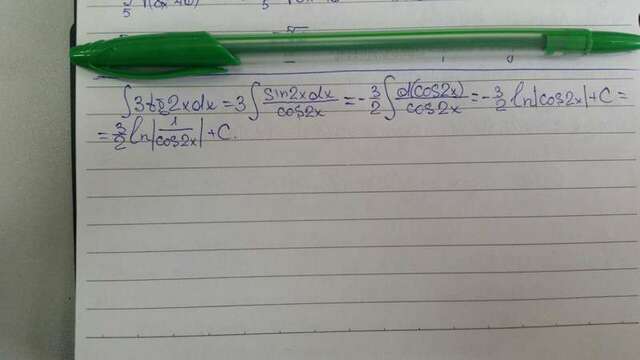 ∫3tg2xdx = 3∫ sin2xdx/cos2x = -3/2 ∫ d(cos2x)/cos2x = -3/2 ln|cos2x| + C =
= 3/2 ln|1/cos2x| + C.